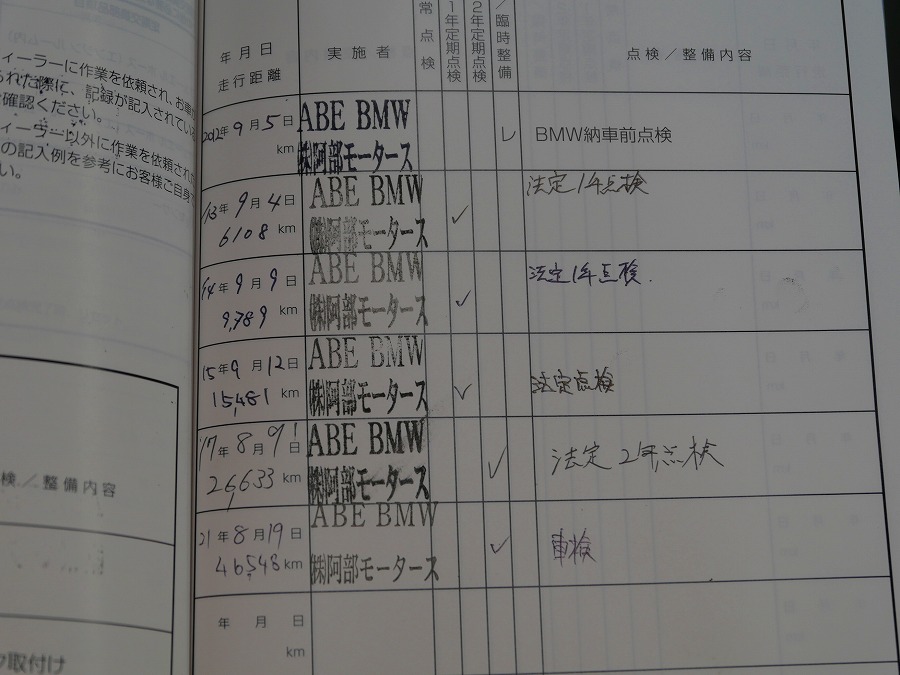 ィーラーに作業を依頼され、お車
られた際に、記録が記入されている
確認ください。
ィーラー以外に作業を依頼された
の記入例を参考にお客様ご自身
い。
検／整備内容
ク取付け
年月日
走行距離
実施者
常点検
1年定期点検
2年定期点検
／臨時整備
点検／整備内容
2012年9月5日
km
ABE BMW
㈱阿部モータース
レ
BMW納車前点検
'13年9月4日
6108 km
ABE BMW
㈱阿部モータース
✓
法定1年点検
'14年9月9日
9,789 km
ABE BMW
㈱阿部モータース
✓
法定1年点検.
15年9月12日
15,481 km
ABE BMW
㈱阿部モータース
✓
法定点検
'17年8月9日
26,633 km
ABE BMW
㈱阿部モータース
✓
法定2年点検
21年8月19日
46,548 km
ABE BMW
㈱阿部モータース
✓
車検
年 月 日
km